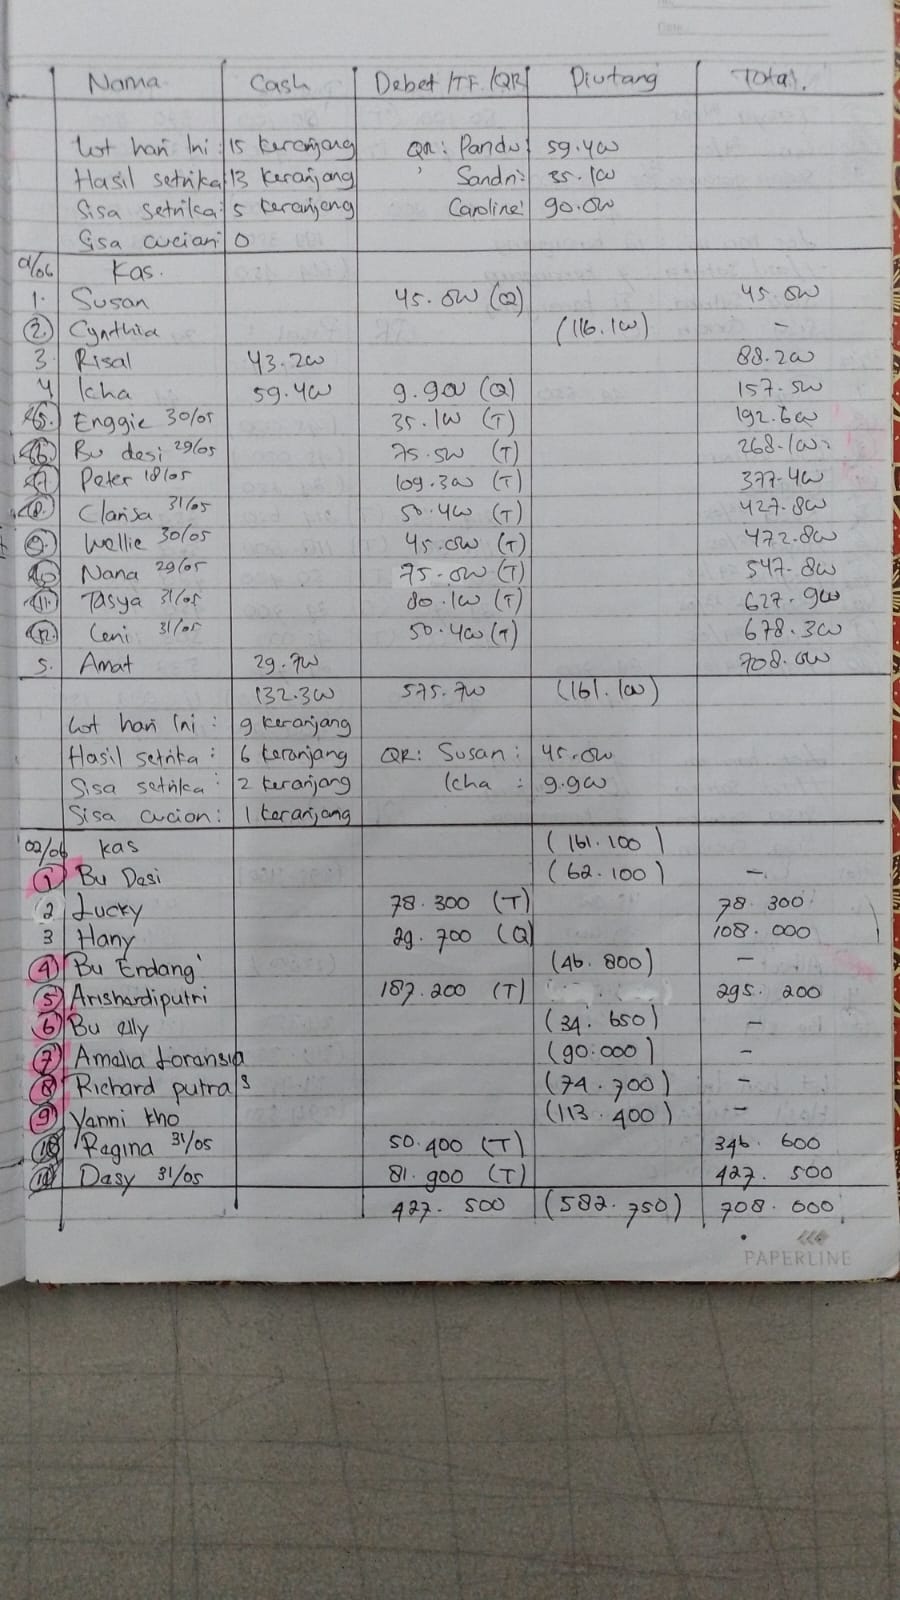 Nama Cash Debet /TF /QR Piutang Total.
Cust hari Ini : 15 keranjang QR : Pandu : 59.400
Hasil setrika : 13 keranjang Sandri : 35.100
Sisa setrika : 5 keranjang Caroline : 90.000
Sisa cucian : 0
01/06 Kas.
1. Susan 45.000 (Q) 45.000
2. Cynthia (116.100) -
3. Risal 43.200 88.200
4 Icha 59.400 9.900 (Q) 157.500
5. Enggie 30/05 35.100 (T) 192.600
6. Bu desi 29/05 75.500 (T) 268.100
7 Peter 18/05 109.300 (T) 377.400
8. Clarisa 31/05 50.400 (T) 427.800
9. Wellie 30/05 45.000 (T) 472.800
10 Nana 29/05 75.000 (T) 547.800
11. Tasya 31/05 80.100 (T) 627.900
12. Ceni 31/05 50.400 (T) 678.300
5. Amat 29.700 708.000
132.300 575.700 (161.100)
Cust hari Ini : 9 keranjang
Hasil setrika : 6 keranjang QR : Susan : 45.000
Sisa setrika : 2 keranjang Icha : 9.900
Sisa cucian : 1 keranjang
02/06 kas (161.100)
1 Bu Desi (62.100) -
2 Lucky 78.300 (T) 78.300
3 Hany 29.700 (Q) 108.000
4 Bu Endang (46.800) -
5 Arishardiputri 187.200 (T) 295.200
6 Bu elly (34.650) -
7 Amelia Loransia (90.000) -
8 Richard putra s (74.700) -
9 Yanni kho (113.400) -
10 Regina 31/05 50.400 (T) 346.600
11 Desy 31/05 81.900 (T) 427.500
427.500 (582.750) 708.000
PAPERLINE